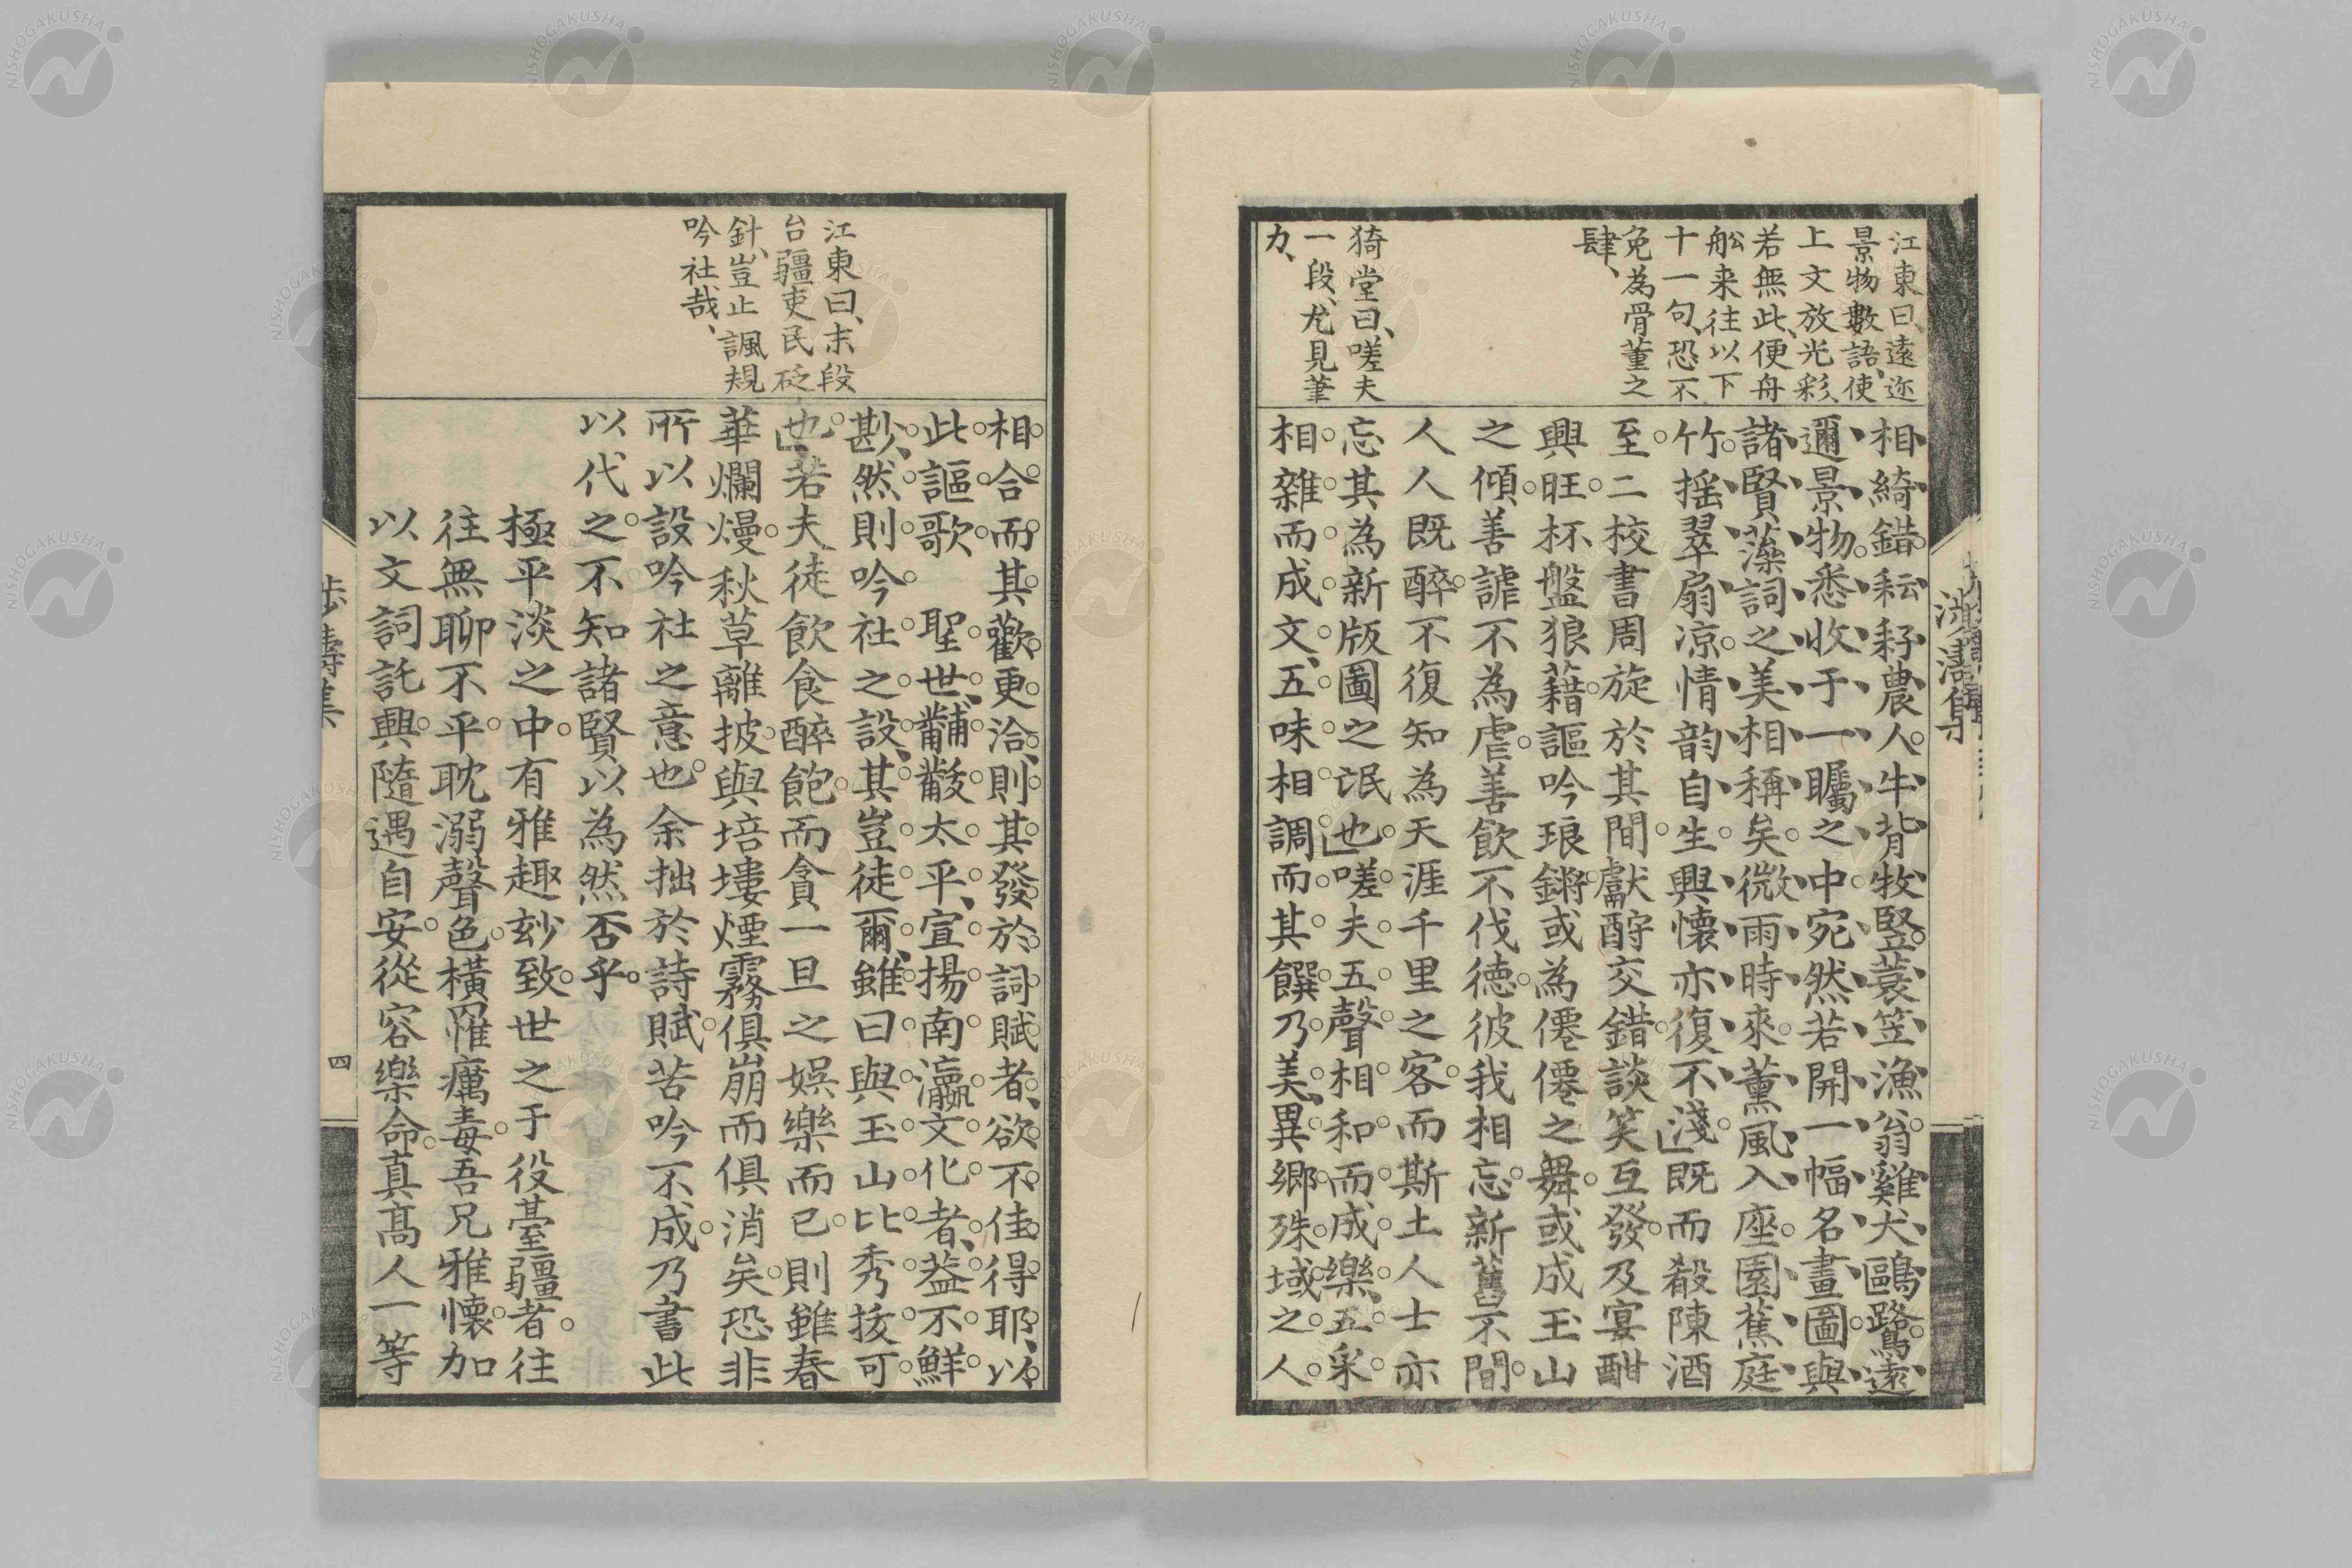 江東曰、遠迩
景物數語、使
上文放光彩、
若無此、便舟
舩来往以下
十一句、恐不
免為骨董之
肆、
猗堂曰、嗟夫
一段、尤見筆
力、
相綺錯。耘耔農人。牛背牧豎。蓑笠漁翁。雞犬鷗鷺。遠
邇景物。悉收于一矚之中。宛然若開一幅名畫圖。與
諸賢藻詞之美相稱矣。微雨時來。薰風入座。園蕉庭
竹。搖翠扇凉。情韵自生。興懷亦復不淺。既而殽陳酒
至。二校書周旋於其間。獻酧交錯。談笑互發。及宴酣
興旺。杯盤狼藉。謳吟琅鏘。或為僊僊之舞。或成玉山
之傾、善謔不為虐。善飲不伐德。彼我相忘。新舊不間。
人人既醉。不復知為天涯千里之客。而斯土人士亦
忘其為新版圖之氓也。嗟夫。五聲相和而成樂、五采
相雜而成文、五味相調而其饌乃美、異鄉殊域之人。
相合而其歡更洽、則其發於詞賦者、欲不佳得耶、以
此謳歌 聖世、黼黻太平、宣揚南瀛文化者、葢不鮮
尠、然則吟社之設、其豈徒爾、雖曰與玉山比秀拔可
也。若夫徒飲食醉飽。而貪一旦之娛樂而已。則雖春
華爛熳。秋草離披。與培塿煙霧俱崩而俱消矣。恐非
所以設吟社之意也。余拙於詩賦。苦吟不成。乃書此
以代之。不知諸賢以為然否乎。
極平淡之中。有雅趣玅致。世之于役臺疆者。往
往無聊不平。耽溺聲色。橫罹癘毒。吾兄雅懷。加
以文詞託興。隨遇自安。從容樂命。真高人一等
江東曰、末段
台疆吏民砭
針、豈止諷規
吟社哉、
四